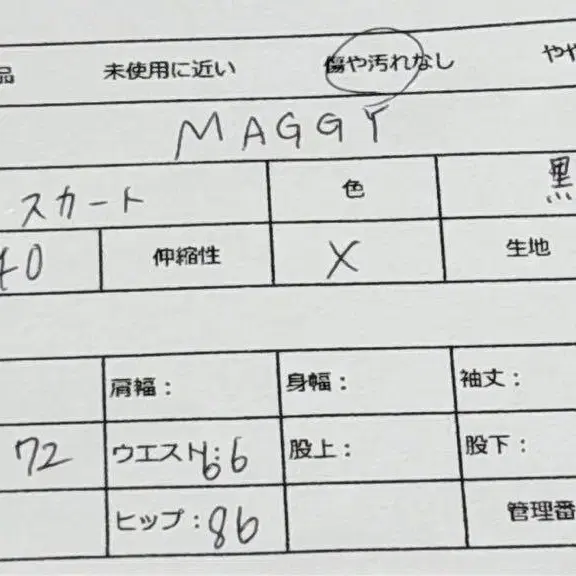 品 未使用に近い 傷や汚れなし やや
MAGGY
スカート 色 黒
40 伸縮性 X 生地
肩幅： 身幅： 袖丈：
72 ウエスト：66 股上： 股下：
ヒップ：86 管理番